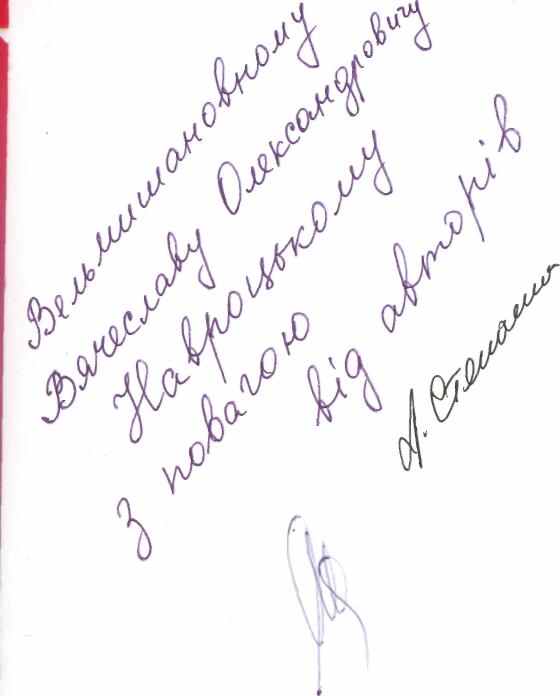 Вельмишановному
Вячеславу Олександровичу
Навроцькому
З повагою
від авторів
А. Степанен